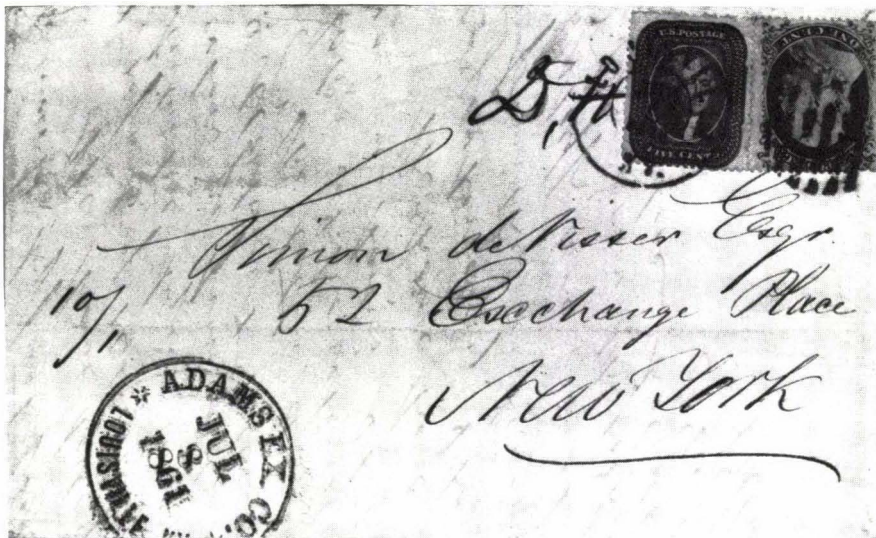 U.S. POSTAGE
FIVE CENTS
ONE CENT
D, H
Simon de Visser Esqr.
10/1 52 Exchange Place
New York
ADAMS EX. CO. * LOUISVILLE *
JUL
8
1861